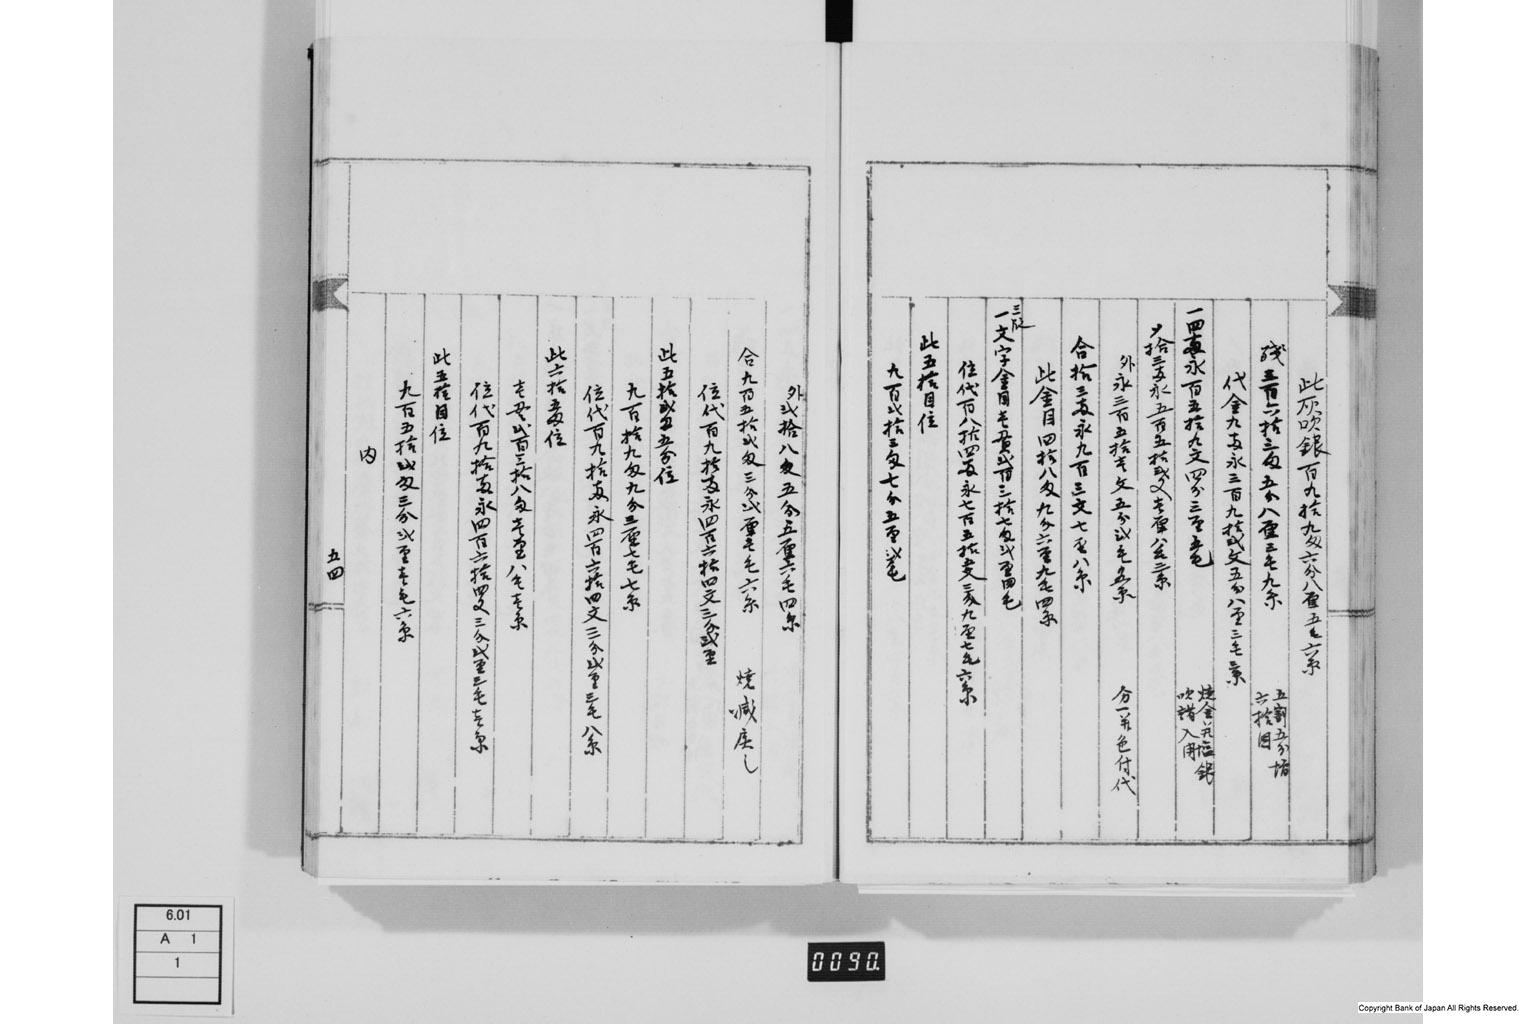 此灰吹銀百九拾九匁六分八厘五毛六糸
残三百六拾三匁五分八厘三毛九糸
五割五分増
六拾目
代金九両永三百九拾弐文五分八厘三毛三糸
一四両永百五拾九文四分三厘五毛
焼金并塩銀
吹諸入用
〆拾三両永五百五拾弐文壱厘八毛三糸
外永三百五拾壱文五分弐毛五糸
分一并色付代
合拾三両永九百三文七厘八糸
此金目四拾八匁九分六厘九毛四糸
三版
一文字金目壱貫弐百三拾七匁弐厘四毛
位代百八拾四両永七百五拾壱文三分九厘七毛六糸
此五拾目位
九百弐拾三匁七分五厘弐毛
外弐拾八匁五分五厘六毛四糸
合九百五拾弐匁三分弐厘壱毛六糸
焼減戻し
位代百九拾両永四百六拾四文三分弐厘
此五拾弐匁五分位
九百拾九匁九分三厘七毛七糸
位代百九拾両永四百六拾四文三分弐厘三毛八糸
此六拾五匁位
壱貫弐百三拾八匁壱厘八毛壱糸
位代百九拾両永四百六拾四文三分弐厘三毛壱糸
此五拾目位
九百五拾弐匁三分弐厘壱毛六糸
内
五四
6.01
A 1
1
0090.
Copyright Bank of Japan All Rights Reserved.